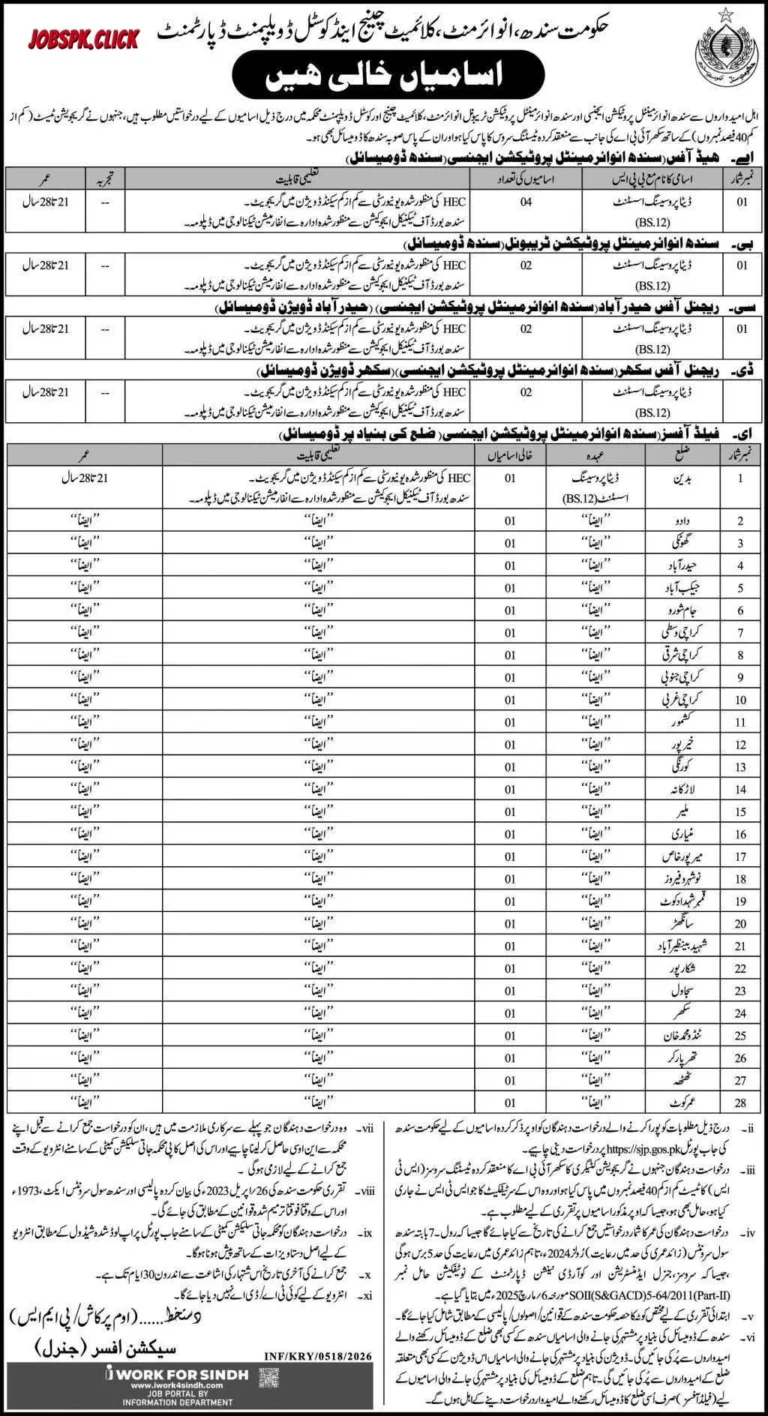 JOBSPK.CLICK
حکومت سندھ، انوائرمنٹ، کلائمیٹ چینج اینڈ کوسٹل ڈویلپمنٹ ڈپارٹمنٹ
اسامیاں خالی ہیں
اہل امیدواروں سے سندھ انوائرمینٹل پروٹیکشن ایجنسی اور سندھ انوائرمینٹل پروٹیکشن ٹریبونل انوائرمنٹ، کلائمیٹ چینج اور کوسٹل ڈویلپمنٹ محکمہ میں درج ذیل اسامیوں کے لیے درخواستیں مطلوب ہیں، جنہوں نے گریجویشن ٹیسٹ (کم از
کم 40 فیصد نمبروں) کے ساتھ سکھر آئی بی اے کی جانب سے منعقد کردہ ٹیسٹنگ سروس کا پاس کیا ہو اور ان کے پاس صوبہ سندھ کا ڈومیسائل بھی ہو۔
اے۔ ہیڈ آفس (سندھ انوائرمینٹل پروٹیکشن ایجنسی) (سندھ ڈومیسائل)
نمبر شمار اسامی کا نام مع بی پی ایس اسامیوں کی تعداد تعلیمی قابلیت تجربہ عمر
01 ڈیٹا پروسیسنگ اسسٹنٹ 04 HEC کی منظور شدہ یونیورسٹی سے کم از کم سیکنڈ ڈویژن میں گریجویٹ۔ -- 21 تا 28 سال
(BS.12) سندھ بورڈ آف ٹیکنیکل ایجوکیشن سے منظور شدہ ادارہ سے انفارمیشن ٹیکنالوجی میں ڈپلومہ۔
بی۔ سندھ انوائرمینٹل پروٹیکشن ٹریبونل (سندھ ڈومیسائل)
01 ڈیٹا پروسیسنگ اسسٹنٹ 02 HEC کی منظور شدہ یونیورسٹی سے کم از کم سیکنڈ ڈویژن میں گریجویٹ۔ -- 21 تا 28 سال
(BS.12) سندھ بورڈ آف ٹیکنیکل ایجوکیشن سے منظور شدہ ادارہ سے انفارمیشن ٹیکنالوجی میں ڈپلومہ۔
سی۔ ریجنل آفس حیدرآباد (سندھ انوائرمینٹل پروٹیکشن ایجنسی) (حیدرآباد ڈویژن ڈومیسائل)
01 ڈیٹا پروسیسنگ اسسٹنٹ 02 HEC کی منظور شدہ یونیورسٹی سے کم از کم سیکنڈ ڈویژن میں گریجویٹ۔ -- 21 تا 28 سال
(BS.12) سندھ بورڈ آف ٹیکنیکل ایجوکیشن سے منظور شدہ ادارہ سے انفارمیشن ٹیکنالوجی میں ڈپلومہ۔
ڈی۔ ریجنل آفس سکھر (سندھ انوائرمینٹل پروٹیکشن ایجنسی) (سکھر ڈویژن ڈومیسائل)
ڈیٹا پروسیسنگ اسسٹنٹ 02 HEC کی منظور شدہ یونیورسٹی سے کم از کم سیکنڈ ڈویژن میں گریجویٹ۔ -- 21 تا 28 سال
(BS.12) سندھ بورڈ آف ٹیکنیکل ایجوکیشن سے منظور شدہ ادارہ سے انفارمیشن ٹیکنالوجی میں ڈپلومہ۔
ای۔ فیلڈ آفسز (سندھ انوائرمینٹل پروٹیکشن ایجنسی) (ضلع کی بنیاد پر ڈومیسائل)
نمبر شمار ضلع عہدہ خالی اسامیاں تعلیمی قابلیت عمر
1 بدین ڈیٹا پروسیسنگ 01 HEC کی منظور شدہ یونیورسٹی سے کم از کم سیکنڈ ڈویژن میں گریجویٹ۔ 21 تا 28 سال
اسسٹنٹ (BS.12) سندھ بورڈ آف ٹیکنیکل ایجوکیشن سے منظور شدہ ادارہ سے انفارمیشن ٹیکنالوجی میں ڈپلومہ۔
2 دادو ”ایضاً“ 01 ”ایضاً“ ”ایضاً“
3 گھوٹکی ”ایضاً“ 01 ”ایضاً“ ”ایضاً“
4 حیدرآباد ”ایضاً“ 01 ”ایضاً“ ”ایضاً“
5 جیکب آباد ”ایضاً“ 01 ”ایضاً“ ”ایضاً“
6 جام شورو ”ایضاً“ 01 ”ایضاً“ ”ایضاً“
7 کراچی وسطی ”ایضاً“ 01 ”ایضاً“ ”ایضاً“
8 کراچی شرقی ”ایضاً“ 01 ”ایضاً“ ”ایضاً“
9 کراچی جنوبی ”ایضاً“ 01 ”ایضاً“ ”ایضاً“
10 کراچی غربی ”ایضاً“ 01 ”ایضاً“ ”ایضاً“
11 کشمور ”ایضاً“ 01 ”ایضاً“ ”ایضاً“
12 خیرپور ”ایضاً“ 01 ”ایضاً“ ”ایضاً“
13 کورنگی ”ایضاً“ 01 ”ایضاً“ ”ایضاً“
14 لاڑکانہ ”ایضاً“ 01 ”ایضاً“ ”ایضاً“
15 ملیر ”ایضاً“ 01 ”ایضاً“ ”ایضاً“
16 مٹیاری ”ایضاً“ 01 ”ایضاً“ ”ایضاً“
17 میرپور خاص ”ایضاً“ 01 ”ایضاً“ ”ایضاً“
18 نوشہرو فیروز ”ایضاً“ 01 ”ایضاً“ ”ایضاً“
19 قمبر شہدادکوٹ ”ایضاً“ 01 ”ایضاً“ ”ایضاً“
20 سانگھڑ ”ایضاً“ 01 ”ایضاً“ ”ایضاً“
21 شہید بینظیر آباد ”ایضاً“ 01 ”ایضاً“ ”ایضاً“
22 شکارپور ”ایضاً“ 01 ”ایضاً“ ”ایضاً“
23 سجاول ”ایضاً“ 01 ”ایضاً“ ”ایضاً“
24 سکھر ”ایضاً“ 01 ”ایضاً“ ”ایضاً“
25 ٹنڈو محمد خان ”ایضاً“ 01 ”ایضاً“ ”ایضاً“
26 تھرپارکر ”ایضاً“ 01 ”ایضاً“ ”ایضاً“
27 ٹھٹھہ ”ایضاً“ 01 ”ایضاً“ ”ایضاً“
28 عمرکوٹ ”ایضاً“ 01 ”ایضاً“ ”ایضاً“
ii۔ درج ذیل مطلوبات کو پورا کرنے والے درخواست دہندگان کو اوپر ذکر کردہ اسامیوں کے لیے حکومت سندھ
کی جاب پورٹل https://sjp.gos.pk پر درخواست دینی چاہیے۔
iii۔ درخواست دہندگان جنہوں نے گریجویشن کیٹیگری کا سکھر آئی بی اے کا منعقد کردہ ٹیسٹنگ سروسز (ایس ٹی
ایس) کا ٹیسٹ کم از کم 40 فیصد نمبروں میں پاس کیا ہو اور وہ اس کے سرٹیفکیٹ کا جو ایس ٹی ایس نے جاری
کیا ہو، حامل بھی ہو، جیسا کہ اوپر مذکور اسامیوں پر تقرری کے لیے مطلوب ہے۔
iv۔ درخواست دہندگان کی عمر کا شمار درخواستیں جمع کرانے کی تاریخ سے کیا جائے گا جیسا کہ رول۔7 بابتہ سندھ
سول سرونٹس (زائد عمری کی حد میں رعایت) رولز 2024ء، تاہم زائد عمری میں رعایت کی حد 5 برس ہوگی
،جیسا کہ سروسز، جنرل ایڈمنسٹریشن اور کوآرڈی نیشن ڈپارٹمنٹ کے نوٹیفکیشن حامل نمبر
SOII(S&GACD)5-64/2011(Part-II) مورخہ 6؍مارچ 2025 میں بتایا گیا ہے۔
v۔ ابتدائی تقرری کے لیے مختص کوٹہ کا حصہ حکومت سندھ کے قوانین/اصولوں/پالیسی کے مطابق شامل کیا جائے گا۔
vi۔ سندھ کے ڈومیسائل کی بنیاد پر مشتہر کی جانے والی اسامیاں سندھ کے کسی بھی ضلع کے ڈومیسائل رکھنے والے
امیدواروں سے پُر کی جائیں گی۔ ڈویژن کی بنیاد پر مشتہر کی جانے والی اسامیاں اس ڈویژن کے کسی بھی متعلقہ
ضلع کے امیدواروں سے پُر کی جائیں گی۔ تاہم ضلع کے ڈومیسائل کی بنیاد پر مشتہر کی جانے والی اسامیوں کے لیے
(فیلڈ آفسز) صرف اُسی ضلع کا ڈومیسائل رکھنے والے امیدوار درخواست دینے کے اہل ہوں گے۔
vii۔ وہ درخواست دہندگان جو پہلے سے سرکاری ملازمت میں ہیں، ان کو درخواست جمع کرانے سے قبل اپنے
محکمہ سے این او سی حاصل کر لینا چاہیے اور اس کی اصل کاپی محکمہ جاتی سلیکشن کمیٹی کے سامنے انٹرویو کے وقت
جمع کرانے کے لیے لازمی ہوگی۔
viii۔ تقرری حکومت سندھ کی 26؍اپریل 2023ء کی بیان کردہ پالیسی اور سندھ سول سرونٹس ایکٹ، 1973ء
اور اس کے وقتاً فوقتاً ترمیم شدہ قوانین کے مطابق کی جائے گی۔
ix۔ درخواست دہندگان کو محکمہ جاتی سلیکشن کمیٹی کے سامنے جاب پورٹل پر اپ لوڈ شدہ شیڈول کے مطابق انٹرویو
کے لیے اصل دستاویزات کے ساتھ پیش ہونا ہوگا۔
x۔ جمع کرانے کی آخری تاریخ اس اشتہار کی اشاعت سے اندرون 30 ایام تک ہے۔
xi۔ انٹرویو کے لیے کوئی ٹی اے/ڈی اے نہیں دیا جائے گا۔
دستخط......(اوم پرکاش/پی ایم ایس)
سیکشن آفسر (جنرل)
INF/KRY/0518/2026
I WORK FOR SINDH
www.iwork4sindh.com
JOB PORTAL BY
INFORMATION DEPARTMENT